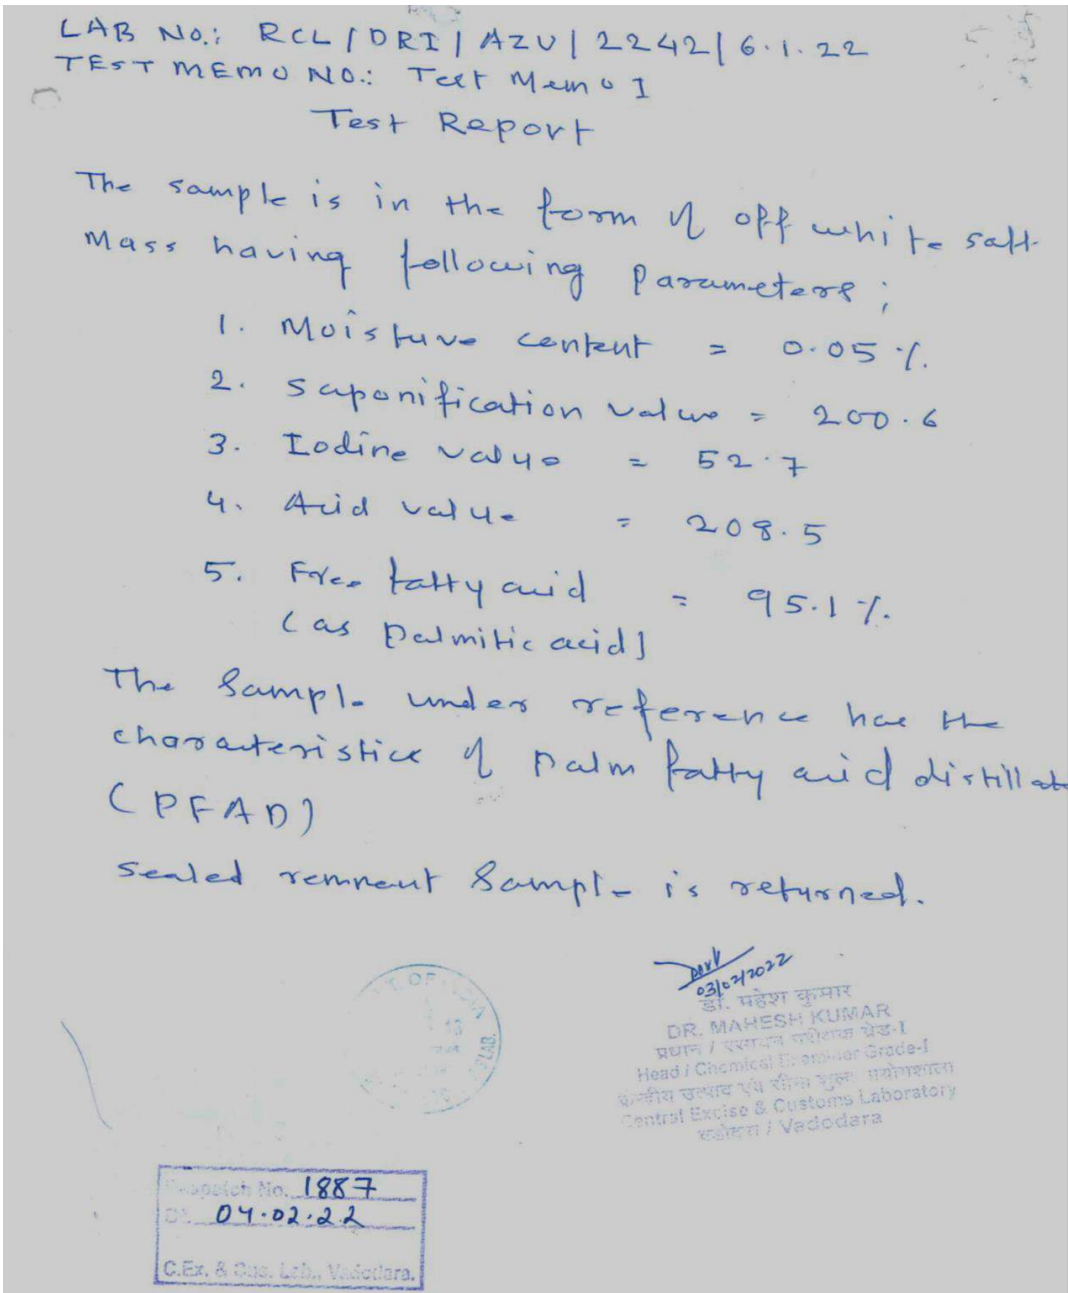 LAB No.: RCL/DRI/AZU/2242/6.1.22
TEST MEMO NO.: Test Memo I
Test Report
The sample is in the form of off white soft
Mass having following parameters;
1. Moisture content = 0.05 %.
2. Saponification value = 200.6
3. Iodine value = 52.7
4. Acid value = 208.5
5. Free fatty acid = 95.1 %.
(as Palmitic acid)
The Sample under reference has the
characteristics of Palm fatty acid distillate
(PFAD)
Sealed remnant Sample is returned.
03/02/2022
डॉ. महेश कुमार
DR. MAHESH KUMAR
प्रधान / रसायन परीक्षक ग्रेड-I
Head / Chemical Examiner Grade-I
केन्द्रीय उत्पाद एवं सीमा शुल्क प्रयोगशाला
Central Excise & Customs Laboratory
वडोदरा / Vadodara
Despatch No. 1887
Dt. 04.02.22
C.Ex. & Cus. Lab., Vadodara.